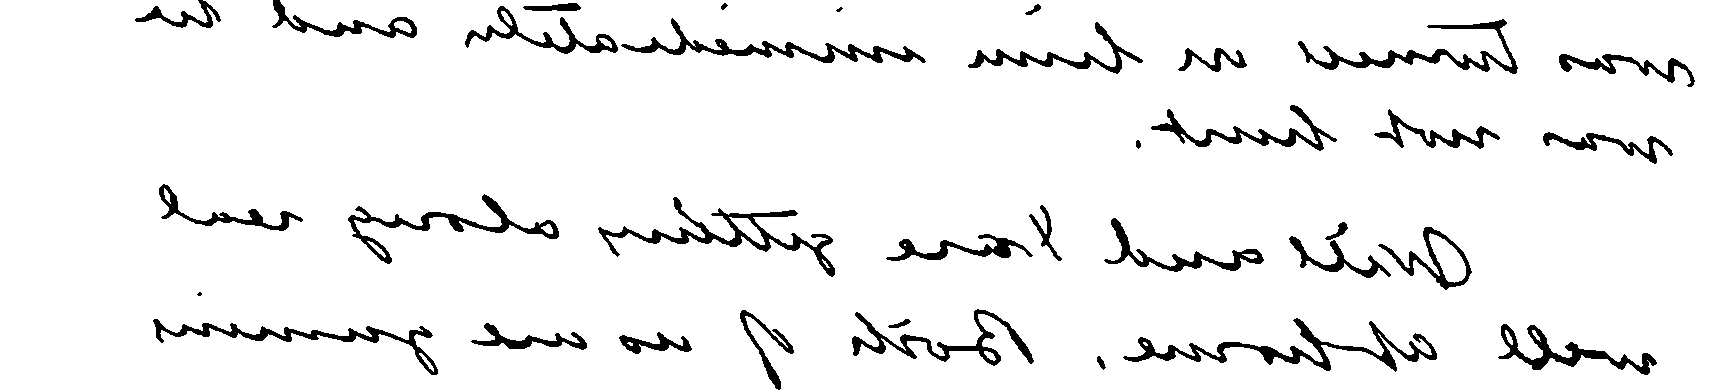 was turned in him immediately and he
was not hurt.
Will and I are getting along real
well at home. Both of us are gaining